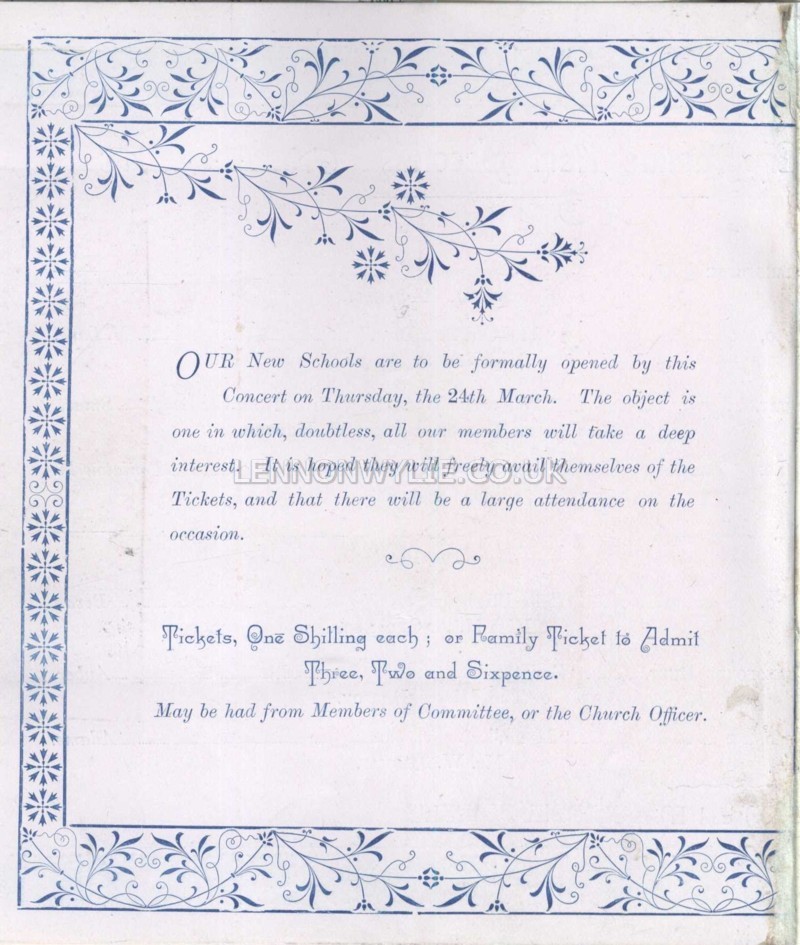 OUR New Schools are to be formally opened by this
Concert on Thursday, the 24th March. The object is
one in which, doubtless, all our members will take a deep
interest. It is hoped they will freely avail themselves of the
LENNONWYLIE.CO.UK
Tickets, and that there will be a large attendance on the
occasion.
Tickets, One Shilling each; or Family Ticket to Admit
Three, Two and Sixpence.
May be had from Members of Committee, or the Church Officer.